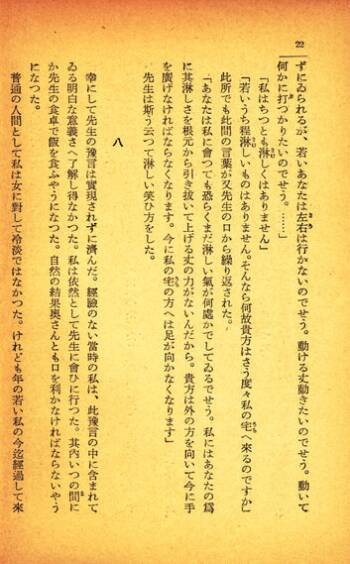 22
ずにゐられるが、若いあなたは左右は行かないのでせう。動ける丈動きたいのでせう。動いて
何かに打つかりたいのでせう。……」
「私はちつとも淋しくはありません」
「若いうち程淋しいものはありません。そんなら何故貴方はさう度々私の宅へ來るのですか」
此所でも此間の言葉が又先生の口から繰り返された。
「あなたは私に會つても恐らくまだ淋しい氣が何處かでしてゐるでせう。私にはあなたの爲
に其淋しさを根元から引き抜いて上げる丈の力がないんだから。貴方は外の方を向いて今に手
を廣げなければならなくなります。今に私の宅の方へは足が向かなくなります」
先生は斯う云つて淋しい笑ひ方をした。
八
幸にして先生の豫言は實現されずに濟んだ。經驗のない當時の私は、此豫言の中に含まれて
ゐる明白な意義さへ了解し得なかつた。私は依然として先生に會ひに行つた。其内いつの間に
か先生の食卓で飯を食ふやうになつた。自然の結果奥さんとも口を利かなければならないやう
になつた。
普通の人間として私は女に對して冷淡ではなかつた。けれども年の若い私の今迄經過して來